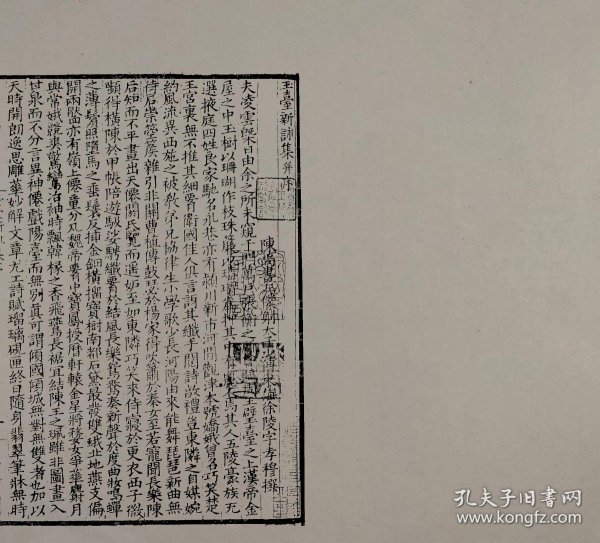 玉臺新詠集并序
陳尚書左僕射太子少傅東海徐陵字孝穆撰
夫凌雲槩日由余之所未窺千門萬戶張衡之所曾賦周王璧臺之上漢帝金
屋之中玉樹以珊瑚作枝珠簾以玳瑁為匣其中有麗人焉其人五陵豪族充
選掖庭四姓良家馳名永巷亦有潁川新市河間觀津本號嬌娥曾名巧笑楚
王宮裏無不推其細要衛國佳人俱言訝其纖手閱詩敦禮豈東鄰之自媒婉
約風流異西施之被教弟兄協律生小學歌少長河陽由來能舞琵琶新曲無
待石崇箜篌雜引非關曹植傳鼓瑟於楊家得吹簫於秦女至若寵聞長樂陳
后知而不平畫出天僊閼氏覽而遥妬至如東鄰巧笑來侍寢於更衣西子微
顰得橫陳於甲帳陪遊馺娑騁纖要於結風長樂鴛鴦奏新聲於度曲妝鳴蟬
之薄鬢照墮馬之垂鬟反插金鈿橫抽寶樹南都石黛最發雙蛾北地燕支偏
開兩靨亦有嶺上僊童分丸魏帝要中寶鳳授曆軒轅金星將婺女爭華麝月
與常娥競爽驚鸞冶袖時飄韓掾之香飛燕長裾宜結陳王之珮雖非圖畫入
甘泉而不分言異神僊戲陽臺而無別真可謂傾國傾城無對無雙者也加以
天時開朗逸思雕華妙解文章尤工詩賦瑠璃硯匣終日隨身翡翠筆牀無時
孔夫子旧书网
www.kongfz.com